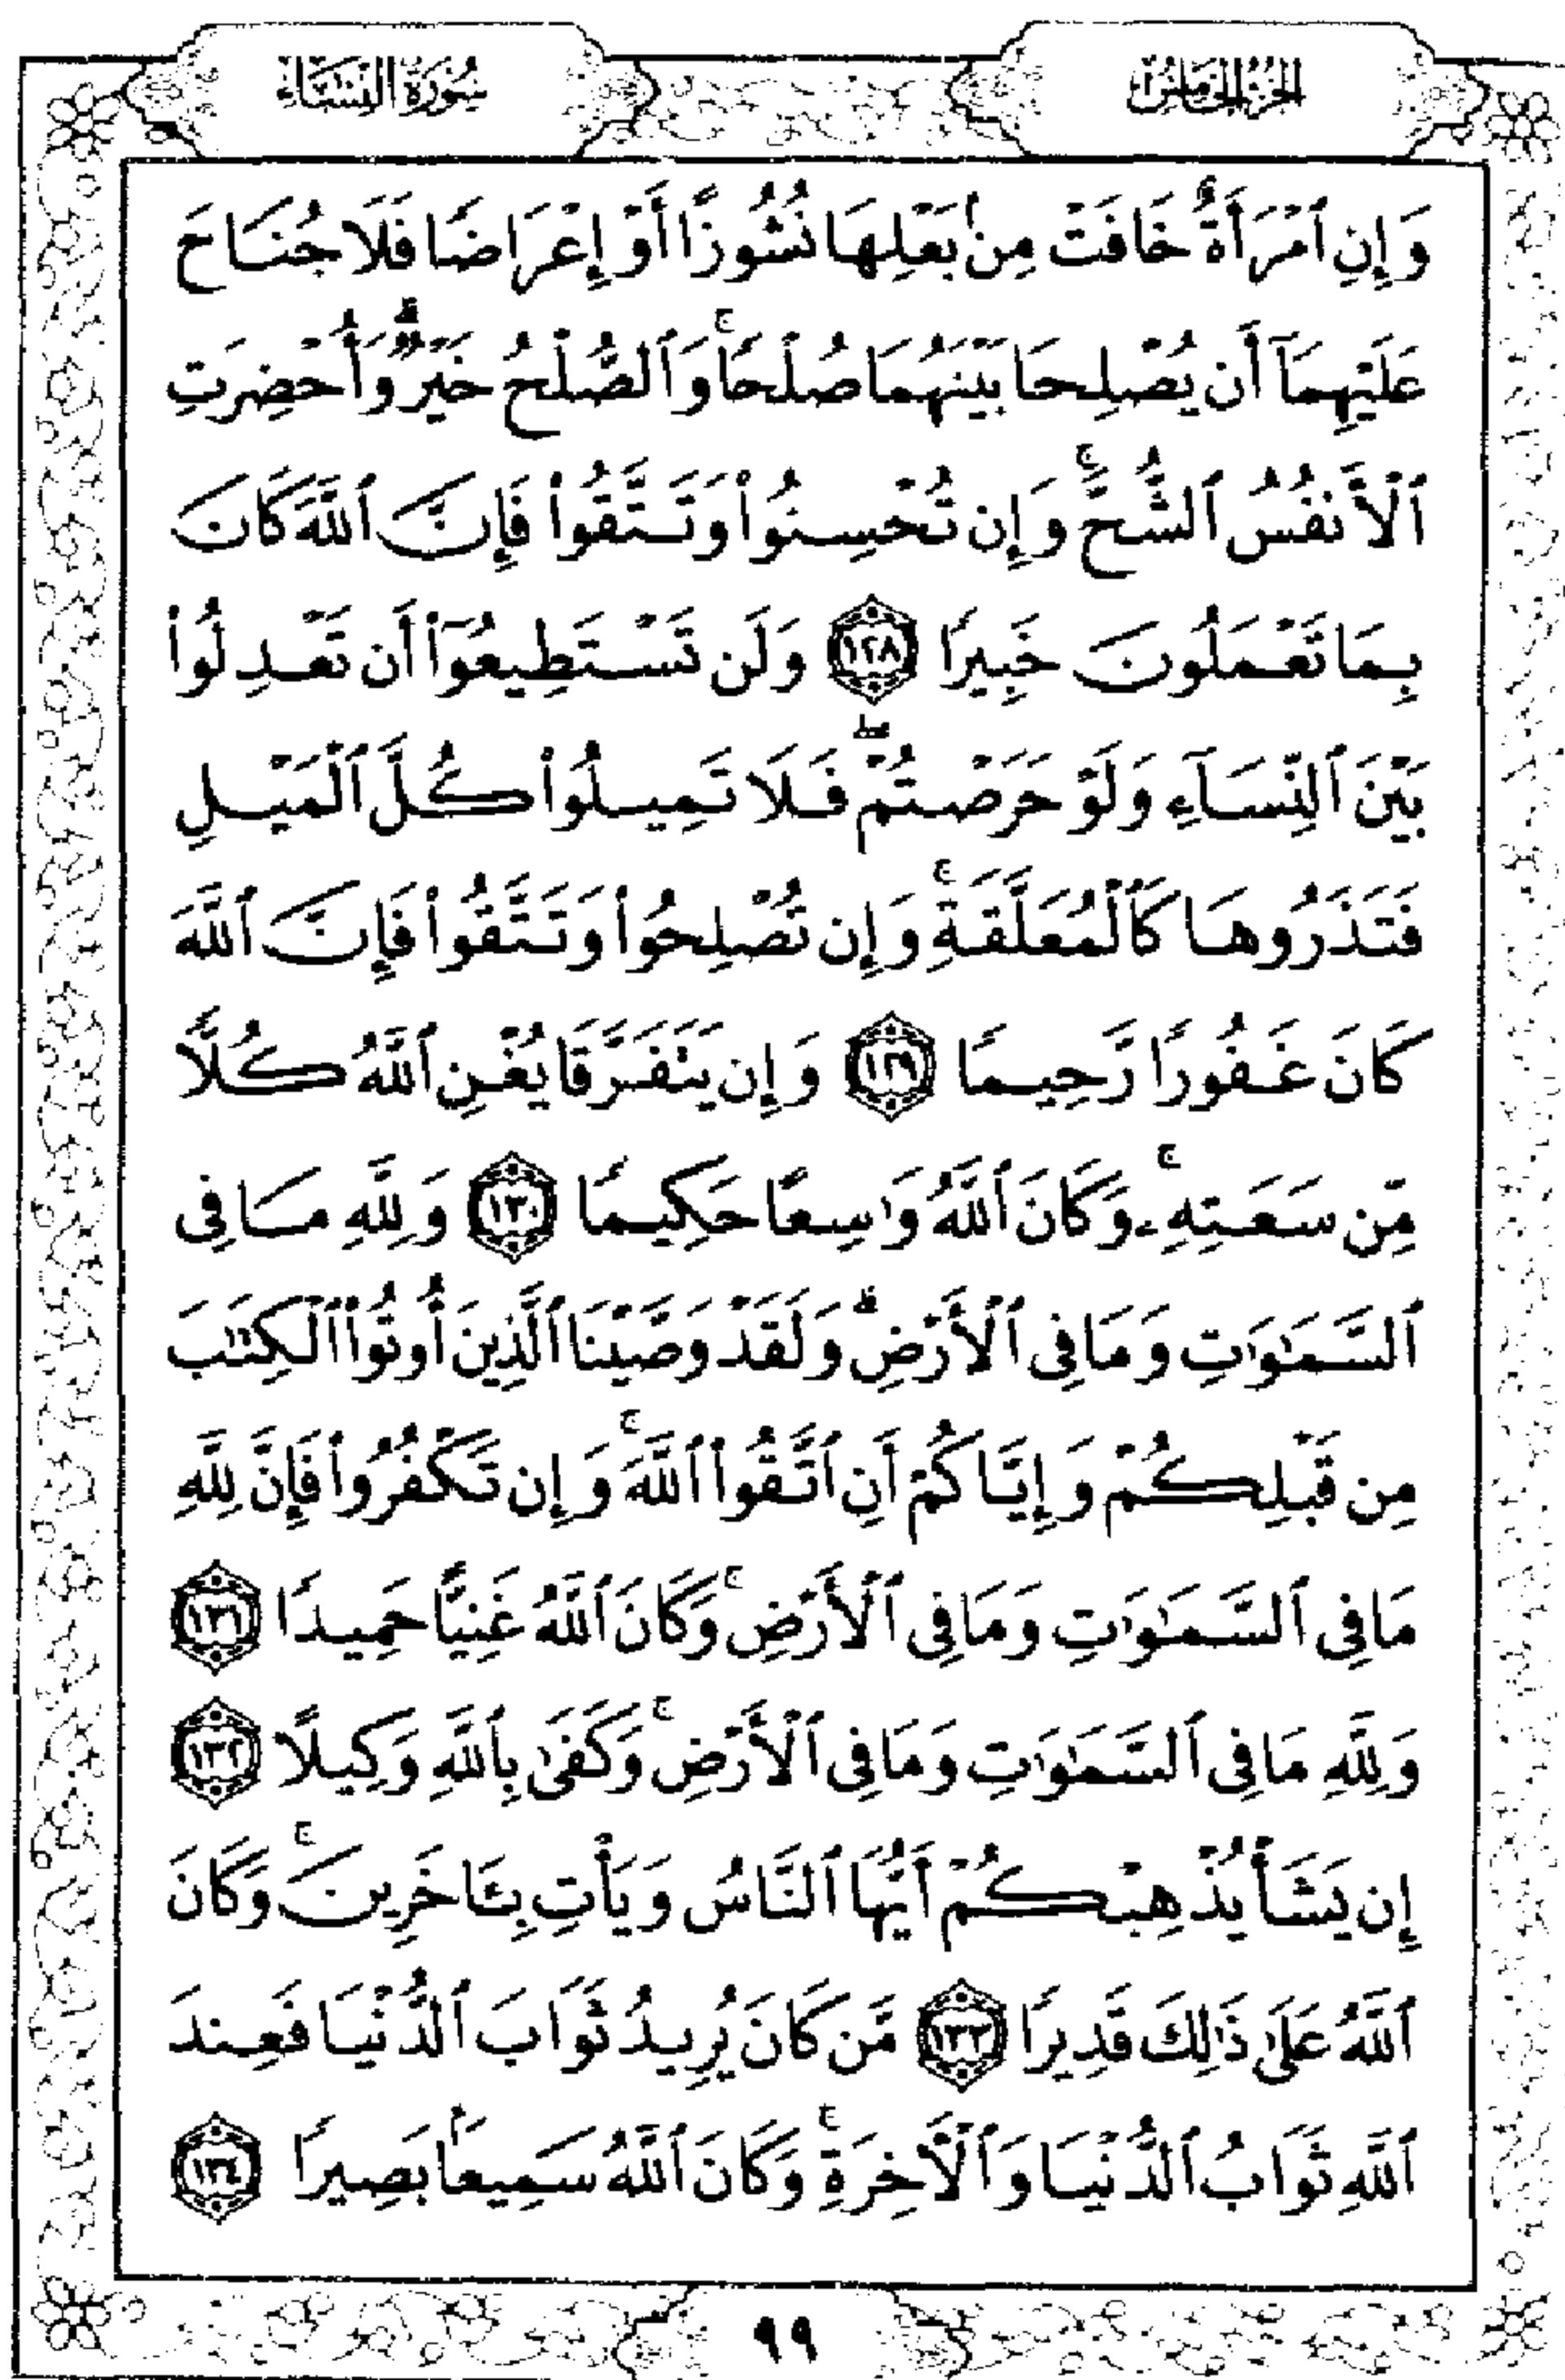 الجزء الخامس
سورة النساء
وَإِنِ ٱمْرَأَةٌ خَافَتْ مِنۢ بَعْلِهَا نُشُوزًا أَوْ إِعْرَاضًا فَلَا جُنَاحَ
عَلَيْهِمَآ أَن يُصْلِحَا بَيْنَهُمَا صُلْحًا ۚ وَٱلصُّلْحُ خَيْرٌ ۗ وَأُحْضِرَتِ
ٱلْأَنفُسُ ٱلشُّحَّ ۚ وَإِن تُحْسِنُوا۟ وَتَتَّقُوا۟ فَإِنَّ ٱللَّهَ كَانَ
بِمَا تَعْمَلُونَ خَبِيرًا ١٢٨ وَلَن تَسْتَطِيعُوٓا۟ أَن تَعْدِلُوا۟
بَيْنَ ٱلنِّسَآءِ وَلَوْ حَرَصْتُمْ ۖ فَلَا تَمِيلُوا۟ كُلَّ ٱلْمَيْلِ
فَتَذَرُوهَا كَٱلْمُعَلَّقَةِ ۚ وَإِن تُصْلِحُوا۟ وَتَتَّقُوا۟ فَإِنَّ ٱللَّهَ
كَانَ غَفُورًا رَّحِيمًا ١٢٩ وَإِن يَتَفَرَّقَا يُغْنِ ٱللَّهُ كُلًّا
مِّن سَعَتِهِۦ ۚ وَكَانَ ٱللَّهُ وَٰسِعًا حَكِيمًا ١٣٠ وَلِلَّهِ مَا فِى
ٱلسَّمَٰوَٰتِ وَمَا فِى ٱلْأَرْضِ ۗ وَلَقَدْ وَصَّيْنَا ٱلَّذِينَ أُوتُوا۟ ٱلْكِتَٰبَ
مِن قَبْلِكُمْ وَإِيَّاكُمْ أَنِ ٱتَّقُوا۟ ٱللَّهَ ۚ وَإِن تَكْفُرُوا۟ فَإِنَّ لِلَّهِ
مَا فِى ٱلسَّمَٰوَٰتِ وَمَا فِى ٱلْأَرْضِ ۚ وَكَانَ ٱللَّهُ غَنِيًّا حَمِيدًا ١٣١
وَلِلَّهِ مَا فِى ٱلسَّمَٰوَٰتِ وَمَا فِى ٱلْأَرْضِ ۚ وَكَفَىٰ بِٱللَّهِ وَكِيلًا ١٣٢
إِن يَشَأْ يُذْهِبْكُمْ أَيُّهَا ٱلنَّاسُ وَيَأْتِ بِـَٔاخَرِينَ ۚ وَكَانَ
ٱللَّهُ عَلَىٰ ذَٰلِكَ قَدِيرًا ١٣٣ مَّن كَانَ يُرِيدُ ثَوَابَ ٱلدُّنْيَا فَعِندَ
ٱللَّهِ ثَوَابُ ٱلدُّنْيَا وَٱلْءَاخِرَةِ ۚ وَكَانَ ٱللَّهُ سَمِيعًۢا بَصِيرًا ١٣٤
٩٩